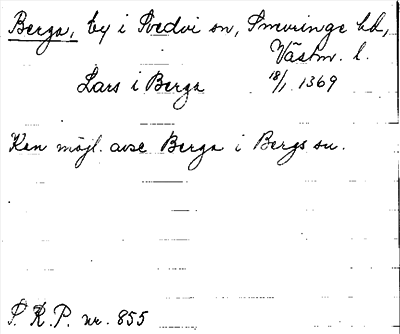 Berga, by i Svedvi sn, Snevringe hd,
Västm. l.
Lars i Berga 18/1 1369
Kan möjl. avse Berga i Bergs sn.
S. R. P. nr. 855